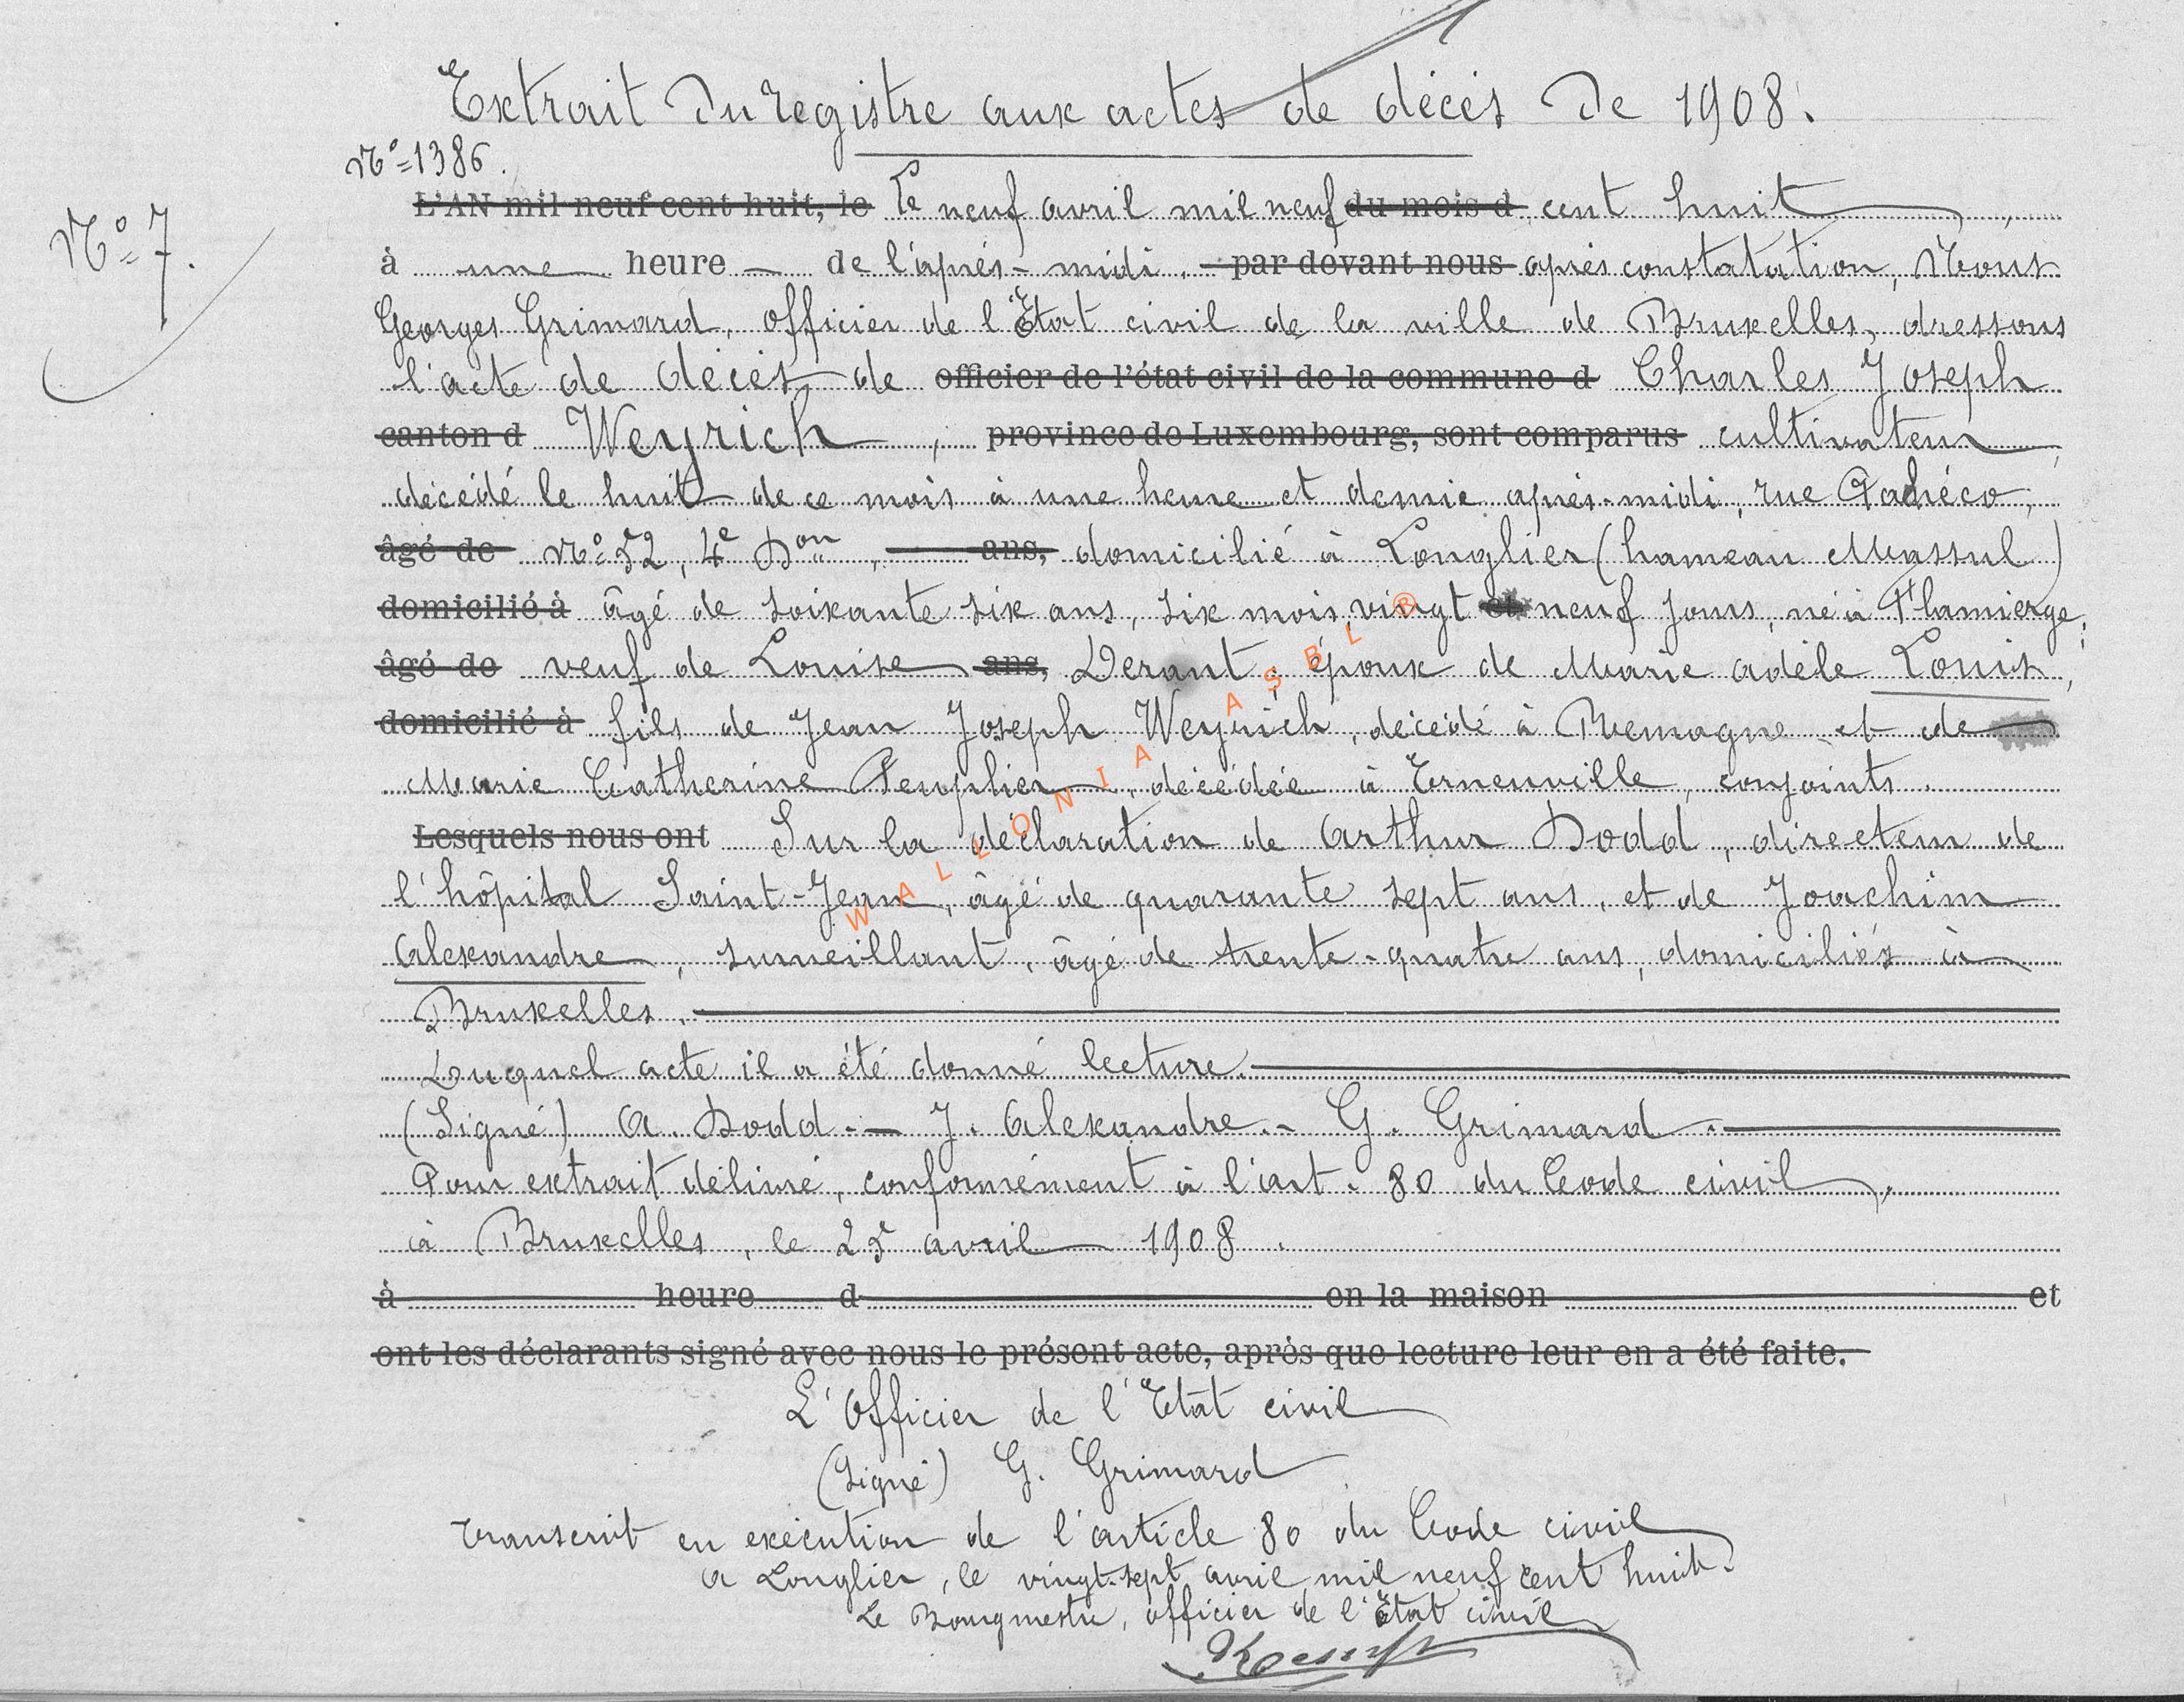 Extrait du registre aux actes de décès de 1908.
N° 1386.
N° 7.
L'AN mil neuf cent huit, le Le neuf avril mil neuf du mois d cent huit
à une heure de l'après-midi, par devant nous après constatation, Nous
Georges Grimard, officier de l'Etat civil de la ville de Bruxelles, dressons
l'acte de décès de officier de l'état civil de la commune d Charles Joseph
canton d Weyrich, province de Luxembourg, sont comparus cultivateur,
décédé le huit de ce mois à une heure et demie après-midi, rue Pachéco,
âgé de N° 52, 4e Don, ans, domicilié à Longlier (hameau Massul)
domicilié à âgé de soixante six ans, six mois, vingt et neuf jours, né à Flamierge,
âgé de veuf de Louise ans, Derant, époux de Marie Adèle Louis,
domicilié à fils de Jean Joseph Weyrich, décédé à Remagne et de
Marie Catherine Peuplier, décédée à Erneuville, conjoints.
Lesquels nous ont Sur la déclaration de Arthur Dodd, directeur de
l'hôpital Saint-Jean, âgé de quarante sept ans, et de Joachim
Alexandre, surveillant, âgé de trente-quatre ans, domiciliés à
Bruxelles.
Duquel acte il a été donné lecture.
(Signé) A. Dodd. — J. Alexandre. - G. Grimard.
Pour extrait délivré, conformément à l'art. 80 du Code civil,
à Bruxelles, le 25 avril 1908.
à heure d en la maison et
ont les déclarants signé avec nous le présent acte, après que lecture leur en a été faite.
L'Officier de l'Etat civil
(Signé) G. Grimard
Transcrit en exécution de l'article 80 du Code civil
à Longlier, le vingt-sept avril mil neuf cent huit.
Le Bourgmestre, officier de l'Etat civil
WALLONIA ASBL ®